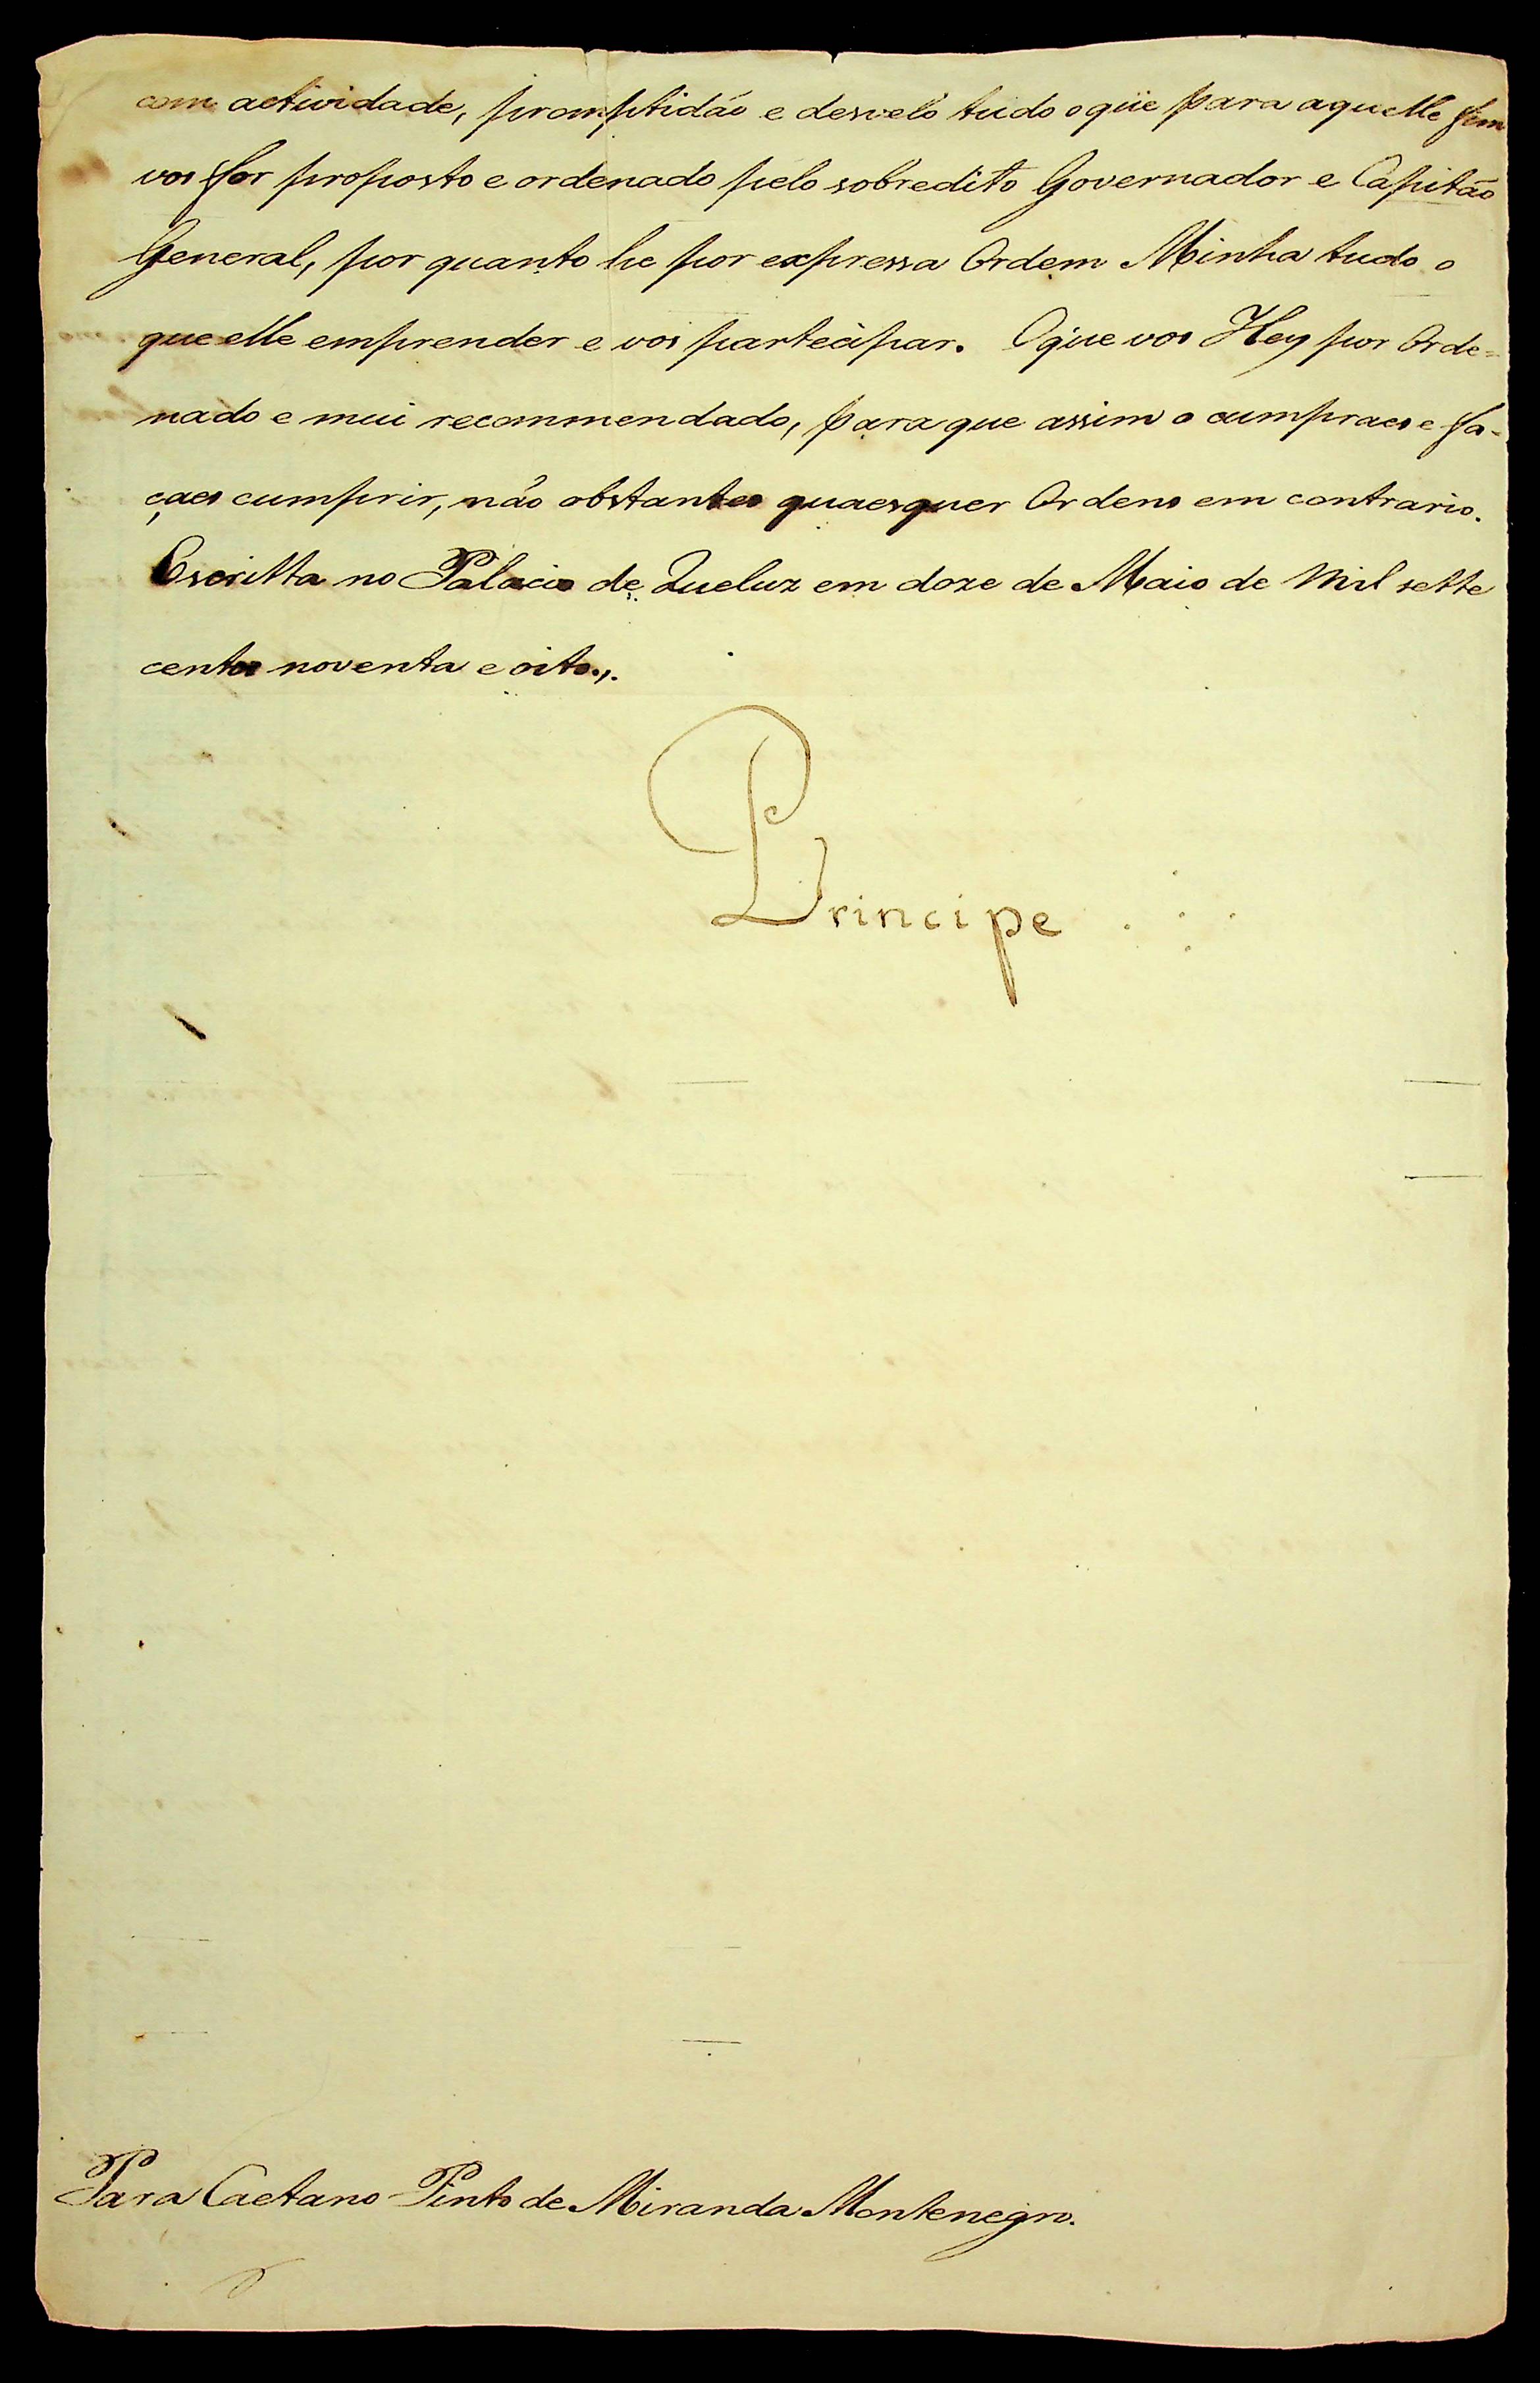 com actividade, promptidão e desvelo tudo o que para aquelle fim
vos for proposto e ordenado pelo sobredito Governador e Capitão
General, por quanto he por expressa Ordem Minha tudo o
que elle emprender e vos partecipar. O que vos Hey por Orde=
nado e mui recommendado, para que assim o cumpraes e fa-
çaes cumprir, não obstantes quaesquer Ordens em contrario.
Escritta no Palacio de Queluz em doze de Maio de Mil sette
centos noventa e oito.,.
Principe
Para Caetano Pinto de Miranda Montenegro.